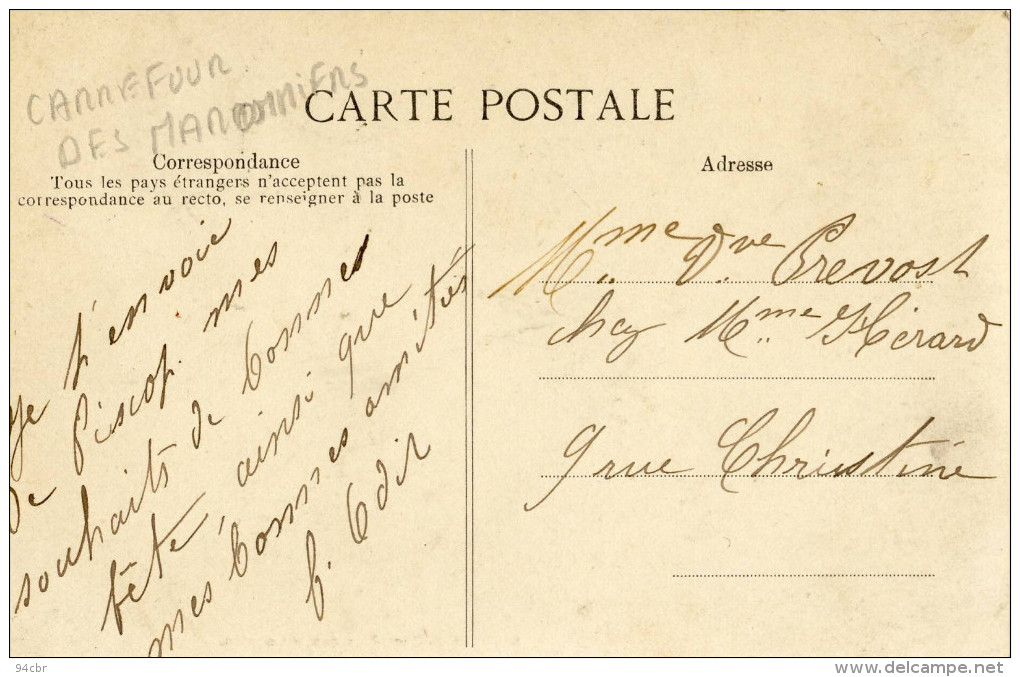 CARREFOUR
DES MARONNIERS
CARTE POSTALE
Correspondance
Tous les pays étrangers n'acceptent pas la
correspondance au recto, se renseigner à la poste
Je t'envoie
de Piscop mes
souhaits de bonne
fête ainsi que
mes bonnes amitiés
Adresse
Mme Vve Prevost
chez Mme Hérard
9 rue Christine
94cbr
www.delcampe.net